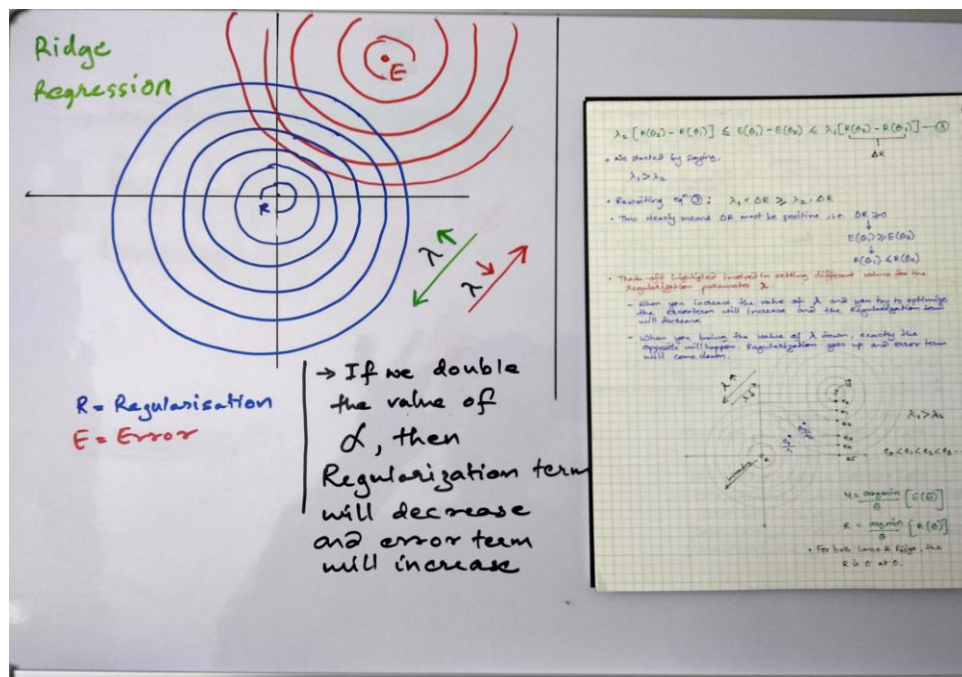 Ridge
Regression
E
R
λ
λ
R = Regularisation
E = Error
→ If we double
the value of
α, then
Regularization term
will decrease
and error term
will increase
λ₂ [R(θ₂) - R(θ₁)] ≤ E(θ₁) - E(θ₂) ≤ λ₁ [R(θ₂) - R(θ₁)] — ③
ΔR
• We started by saying,
λ₁ > λ₂
• Rewriting eqⁿ ③ ; λ₁ · ΔR ≥ λ₂ · ΔR
• This clearly means ΔR must be positive, i.e. ΔR ≥ 0
↓
E(θ₁) ≥ E(θ₂)
↓
R(θ₁) ≤ R(θ₂)
• Trade off highlighted involved in setting different values for the
regularization parameter λ.
- When you increase the value of λ and you try to optimize
the error term will increase and the Regularization term
will decrease
- When you bring the value of λ down, exactly the
opposite will happen. Regularization goes up and error term
will come down.
λ₁ > λ₂
argmin [E(θ)]
θ
R = argmin [R(θ)]
θ
• For both Lasso & Ridge, the
R is 0 at 0.